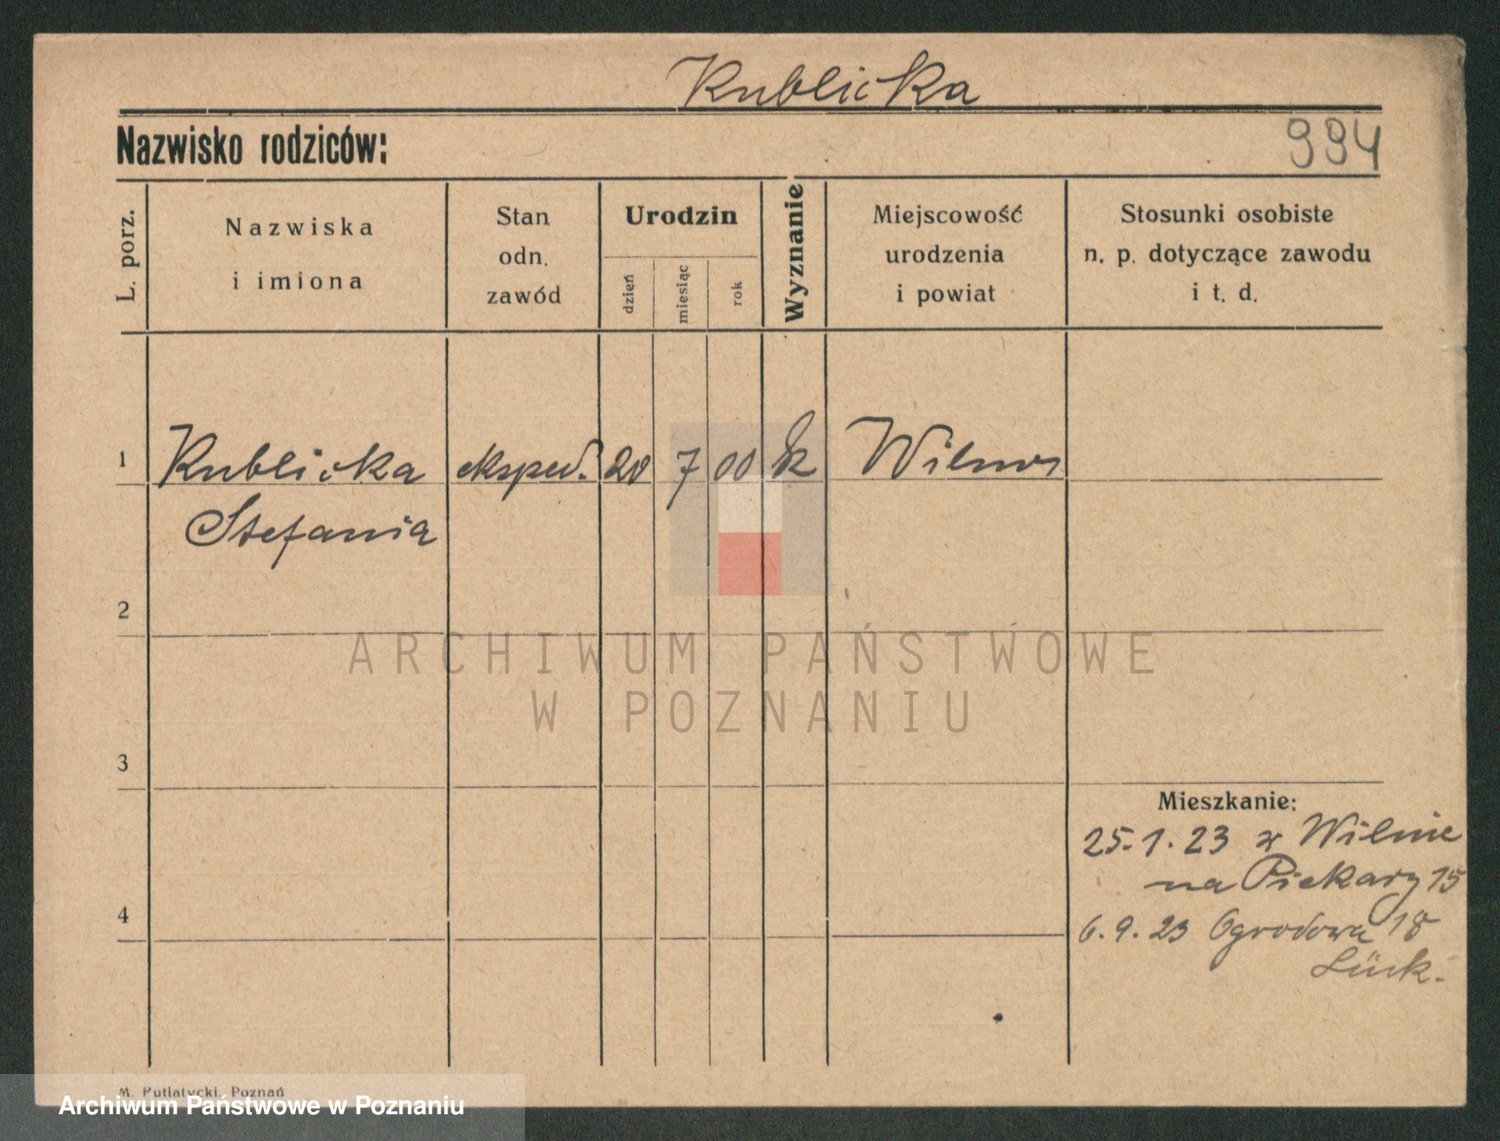 Kublicka
Nazwisko rodziców:
994
L. porz.
Nazwiska
i imiona
Stan
odn.
zawód
Urodzin
dzień
miesiąc
rok
Wyznanie
Miejscowość
urodzenia
i powiat
Stosunki osobiste
n. p. dotyczące zawodu
i t. d.
1 Kublicka eksped. 20 7 00 k Wilno
Stefania
2
ARCHIWUM PAŃSTWOWE
W POZNANIU
3
Mieszkanie:
25.1.23 z Wilnie
na Piekary 15
4
6.9.23 Ogrodowa 18
Lück.
M. Putiatycki, Poznań
Archiwum Państwowe w Poznaniu